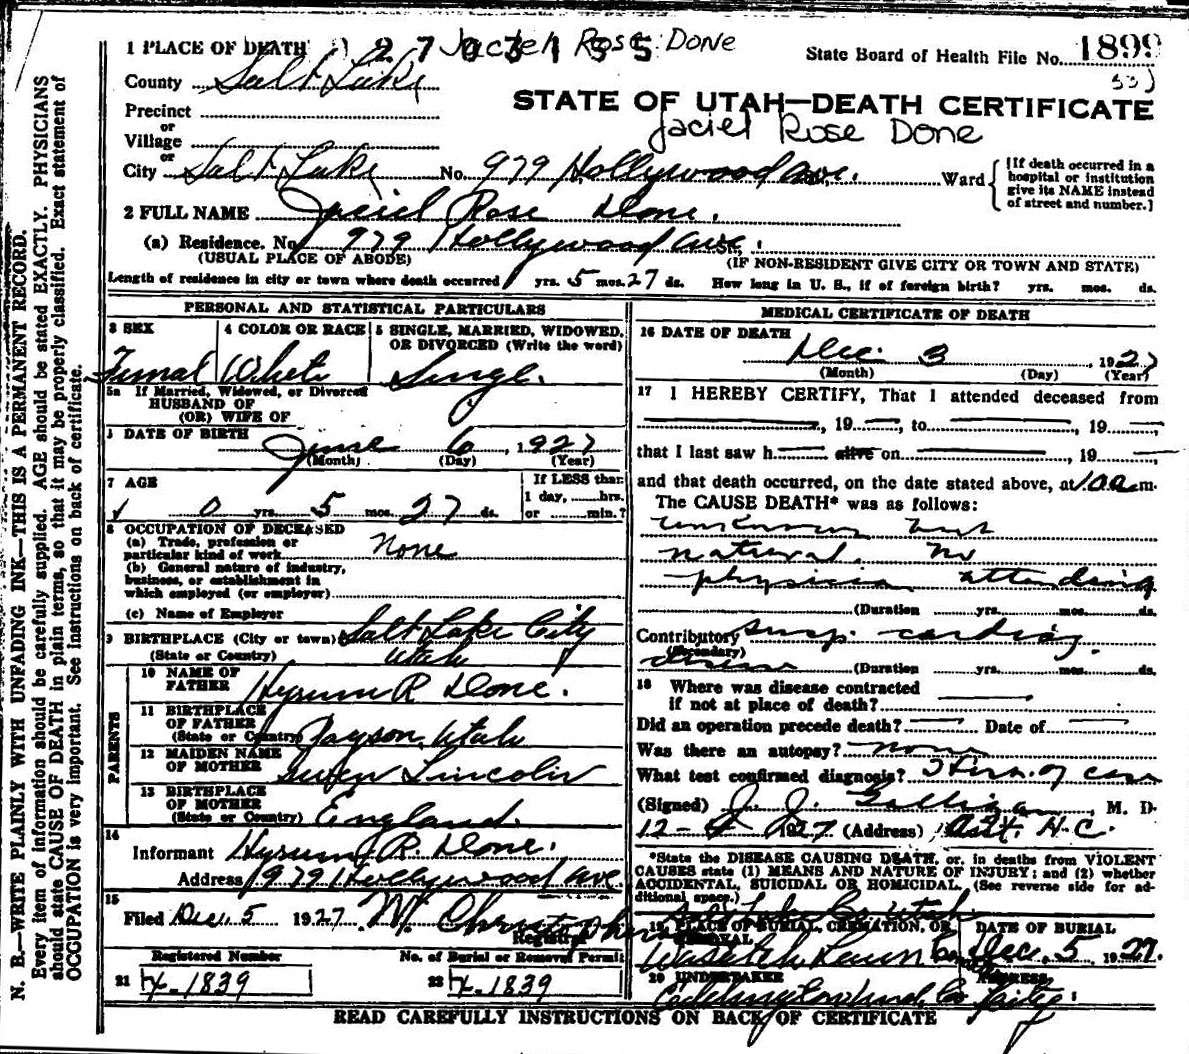 1 PLACE OF DEATH 2703135 Jaciel Rose Done
State Board of Health File No. 1899
County Salt Lake
STATE OF UTAH—DEATH CERTIFICATE
Precinct
Jaciel Rose Done
or
Village
or
City Salt Lake No. 979 Hollywood Ave. Ward
[If death occurred in a
hospital or institution
give its NAME instead
of street and number.]
2 FULL NAME Jaciel Rose Done.
(a) Residence. No. 979 Hollywood Ave.
(USUAL PLACE OF ABODE) (IF NON-RESIDENT GIVE CITY OR TOWN AND STATE)
Length of residence in city or town where death occurred yrs. 5 mos. 27 ds. How long in U. S., if of foreign birth? yrs. mos. ds.
PERSONAL AND STATISTICAL PARTICULARS
3 SEX 4 COLOR OR RACE 5 SINGLE, MARRIED, WIDOWED,
OR DIVORCED (Write the word)
Femal White Single.
5a If Married, Widowed, or Divorced
HUSBAND OF
(OR) WIFE OF
DATE OF BIRTH June 6, 1927
(Month) (Day) (Year)
7 AGE If LESS than
1 day, hrs.
0 yrs. 5 mos. 27 ds. or min.?
8 OCCUPATION OF DECEASED
(a) Trade, profession or
particular kind of work None
(b) General nature of industry,
business, or establishment in
which employed (or employer)
(c) Name of Employer
9 BIRTHPLACE (City or town) Salt Lake City
(State or Country) Utah
PARENTS
10 NAME OF
FATHER Hyrum R Done.
11 BIRTHPLACE
OF FATHER
(State or Country) Payson, Utah
12 MAIDEN NAME
OF MOTHER Gwen Lincoln
13 BIRTHPLACE
OF MOTHER
(State or Country) England.
14
Informant Hyrum R. Done.
Address 979 Hollywood Ave.
15
Filed Dec. 5 1927 M. Christopherson
Registrar
Registered Number No. of Burial or Removal Permit
21 X-1839 22 X-1839
MEDICAL CERTIFICATE OF DEATH
16 DATE OF DEATH
Dec. 3, 1927
(Month) (Day) (Year)
17 I HEREBY CERTIFY, That I attended deceased from
, 19 , to , 19
that I last saw h alive on , 19
and that death occurred, on the date stated above, at 1 a m.
The CAUSE DEATH* was as follows:
unknown but
natural. No
physician attending
(Duration yrs. mos. ds.
Contributory susp. cardiac
(Secondary)
disease (Duration yrs. mos. ds.
18 Where was disease contracted
if not at place of death?
Did an operation precede death? Date of
Was there an autopsy? none
What test confirmed diagnosis? of case
(Signed) J. J. Galligan, M. D.
12-4 1927 (Address) Asst. H.C.
*State the DISEASE CAUSING DEATH, or, in deaths from VIOLENT
CAUSES state (1) MEANS AND NATURE OF INJURY; and (2) whether
ACCIDENTAL, SUICIDAL OR HOMICIDAL. (See reverse side for ad-
ditional space.) Salt Lake Co Utah
19 PLACE OF BURIAL, CREMATION, OR
REMOVAL
DATE OF BURIAL
Wasatch Lawn Dec. 5, 1927.
20 UNDERTAKER ADDRESS
Co City
READ CAREFULLY INSTRUCTIONS ON BACK OF CERTIFICATE
N. B.—WRITE PLAINLY WITH UNFADING INK—THIS IS A PERMANENT RECORD.
Every item of information should be carefully supplied. AGE should be stated EXACTLY. PHYSICIANS
should state CAUSE OF DEATH in plain terms, so that it may be properly classified. Exact statement of
OCCUPATION is very important. See instructions on back of certificate.